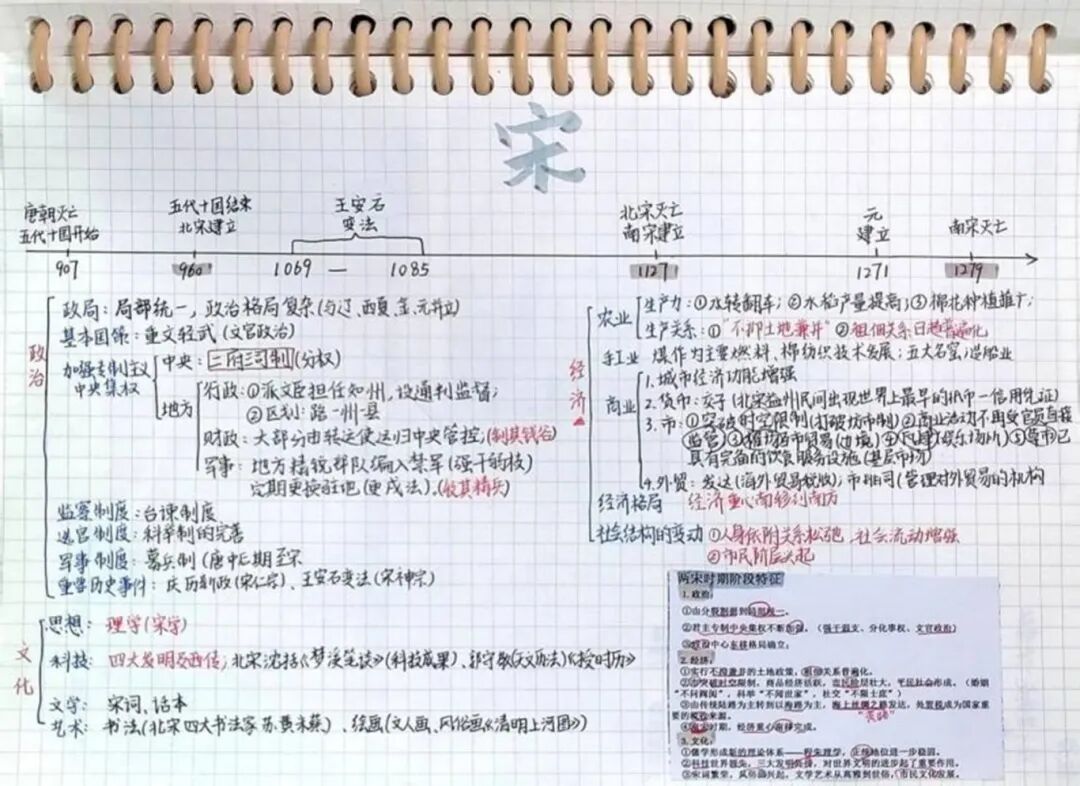 宋
唐朝灭亡
五代十国开始
五代十国结束
北宋建立
王安石
变法
北宋灭亡
南宋建立
元
建立
南宋灭亡
907
960
1069 — 1085
1127
1271
1279
政治
政局：局部统一，政治格局复杂(与辽、西夏、金、元并立)
基本国策：重文轻武(文官政治)
加强专制主义
中央集权
中央：二府三司制(分权)
地方
行政：①派文臣担任知州，设通判监督；
②区划：路—州—县
财政：大部分由转运使运归中央管控；(制其钱谷)
军事：地方精锐部队编入禁军(强干弱枝)
定期更换驻地(更戍法)。(收其精兵)
监察制度：台谏制度
选官制度：科举制的完善
军事制度：募兵制(唐中后期至宋
重要历史事件：庆历新政(宋仁宗)、王安石变法(宋神宗)
文化
思想：理学(宋学)
科技：四大发明及西传；北宋沈括《梦溪笔谈》(科技成果)、郭守敬(天文历法)《授时历》
文学：宋词、话本
艺术：书法(北宋四大书法家 苏黄米蔡)、绘画(文人画、风俗画《清明上河图》)
经济
农业
生产力：①水转翻车；②水稻产量提高；③棉花种植推广；
生产关系：①"不抑土地兼并" ②租佃关系日趋普遍化
手工业 煤作为主要燃料、棉纺织技术发展；五大名窑；造船业
商业
1.城市经济功能增强
2.货币：交子(北宋益州民间出现世界上最早的纸币—信用凭证)
3.市：①突破时空限制(打破坊市制)②商业活动不再受官员直接
监管③榷场互市贸易(边境)④瓦肆(娱乐场所)⑤货币已
具有完备的饮食服务设施(基层市场)
4.外贸：发达(海外贸易税收)；市舶司(管理对外贸易的机构
经济格局 经济重心南移到南方
社会结构的变动 ①人身依附关系松弛，社会流动增强
②市民阶层兴起
两宋时期阶段特征
1.政治：
①由分裂割据到局部统一。
②君主专制中央集权不断加强。（强干弱支、分化事权、文官政治）
格局确立；
2.经济：
①实行不抑兼并的土地政策，租佃关系普遍化。
②市突破时空限制，商品经济活跃，市民阶层壮大，平民社会形成。（婚姻
"不问阀阅"，科举"不问世家"，社交"不限士庶"）
③由传统陆路为主转到以海路为主，海上丝绸之路发达，外贸税成为国家重
要的税收来源。
④南宋时期，经济重心南移完成。
3.文化：
①儒学形成新的理论体系——程朱理学，正统地位进一步稳固。
②科技世界领先，三大发明外传，对世界文明的进步起了重要作用。
③宋词繁荣，风俗画兴起，文学艺术从高雅到世俗，市民文化发展。